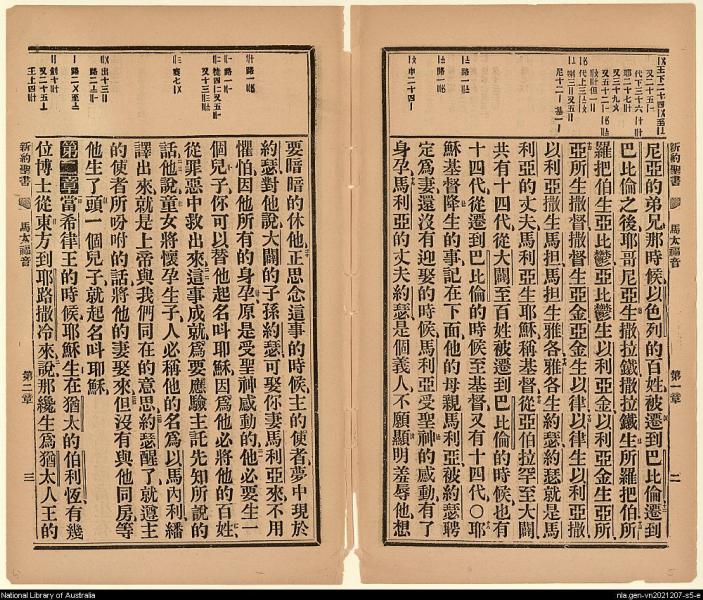 尼亞的弟兄那時候以色列的百姓被遷到巴比倫遷到
巴比倫之後耶哥尼亞生撒拉鐵撒拉鐵生所羅把伯所
羅把伯生亞比鬱亞比鬱生以利亞金以利亞金生亞所
亞所生撒督撒督生亞金亞金生以律以律生以利亞撒
以利亞撒生馬担馬担生雅各雅各生約瑟約瑟就是馬
利亞的丈夫馬利亞生耶穌稱基督從亞伯拉罕至大闢
共有十四代從大闢至百姓被遷到巴比倫的時候也有
十四代從遷到巴比倫的時候至基督又有十四代〇耶
穌基督降生的事記在下面他的母親馬利亞被約瑟聘
定為妻還沒有迎娶的時候馬利亞受聖神的感動有了
身孕馬利亞的丈夫約瑟是個義人不願顯明羞辱他想
新約聖書
馬太福音
第一章
二
要暗暗的休他正思念這事的時候主的使者夢中現於
約瑟對他說大闢的子孫約瑟可娶你妻馬利亞來不用
懼怕因他所有的身孕原是受聖神感動的他必要生一
個兒子你可以替他起名叫耶穌因爲他必將他的百姓
從罪惡中救出來這事成就爲要應驗主託先知所說的
話他說童女將懷孕生子人必稱他的名爲以馬內利繙
譯出來就是上帝與我們同在的意思約瑟醒了就遵主
的使者所吩咐的話將他的妻娶來但沒有與他同房等
他生了頭一個兒子就起名叫耶穌
第二章當希律王的時候耶穌生在猶太的伯利恆有幾
位博士從東方到耶路撒冷來說那纔生爲猶太人王的
新約聖書
馬太福音
第二章
三
National Library of Australia
nla.gen-vn2021207-s5-e